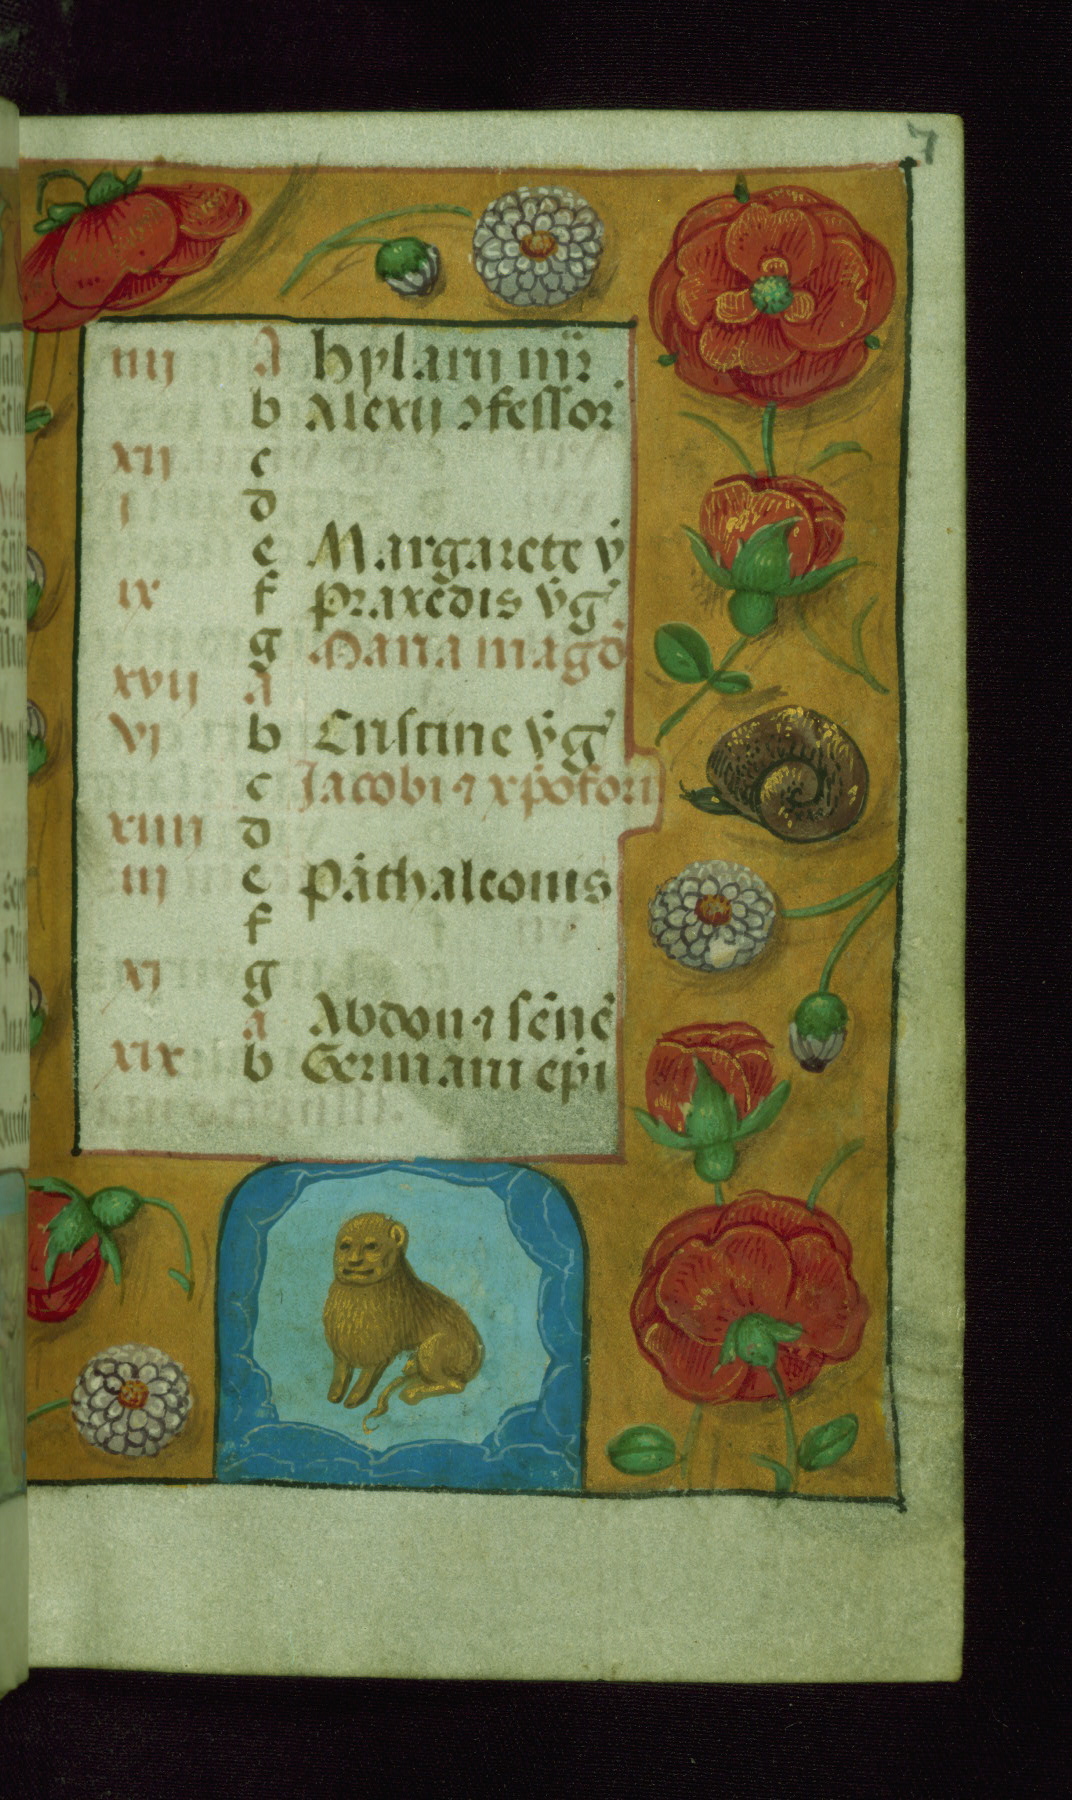 7
iiij A hylarij mr̄
b Alexij ɔfessor
xij c
j d
e Margarete v̄
ix f praxedis v̄g̊
g Maria magd̊
xvij A
vj b Cristine v̄g̊
c Jacobi ⁊ xp̄ofori
xiiij d
iij e pāthaleonis
f
xj g
a Abdon ⁊ sēnē
xix b Germani ep̄i